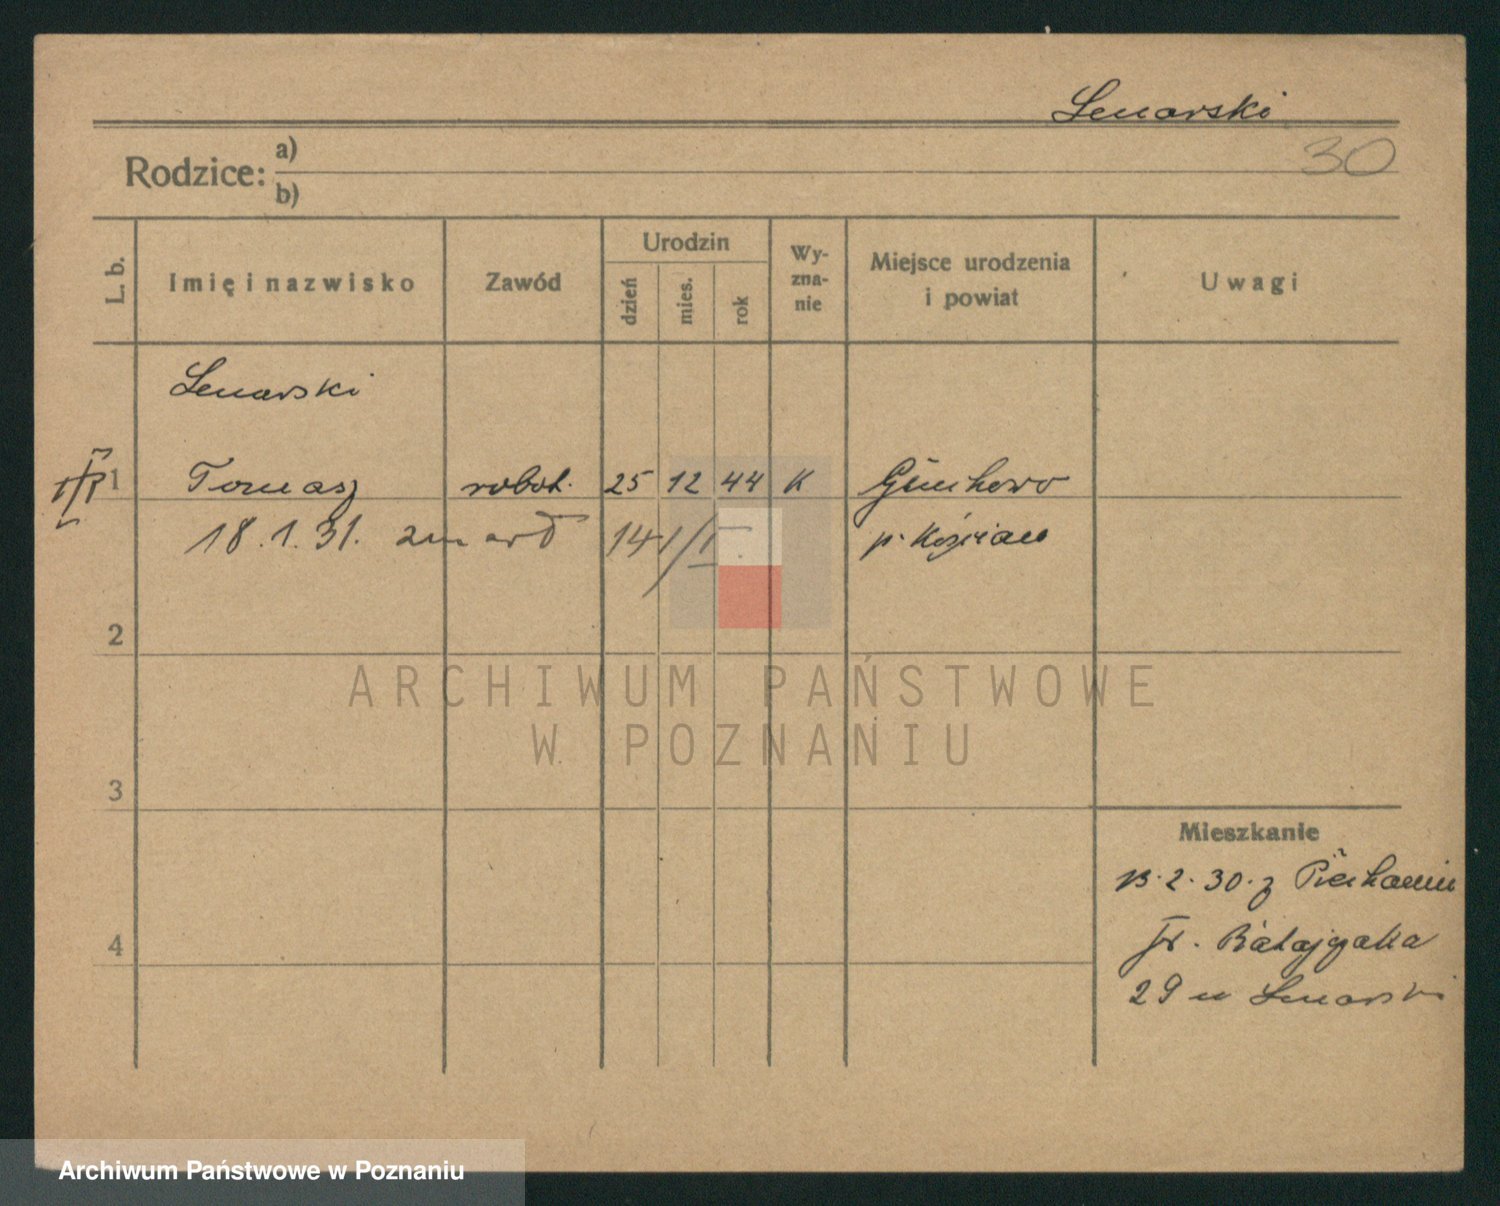 Lenarski
30
Rodzice: a)
b)
L. b. Imię i nazwisko Zawód Urodzin dzień mies. rok Wy-zna-nie Miejsce urodzenia i powiat Uwagi
Lenarski
1 Tomasz robot. 25 12 44 K
18.1.31. zmarł 14/I. p. Kościan
2
ARCHIWUM PAŃSTWOWE
W POZNANIU
3
Mieszkanie
13.2.30. z
4 fr. Ratajczaka
29 u Lenarski
Archiwum Państwowe w Poznaniu